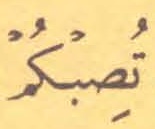 تُصِبْكُمْ